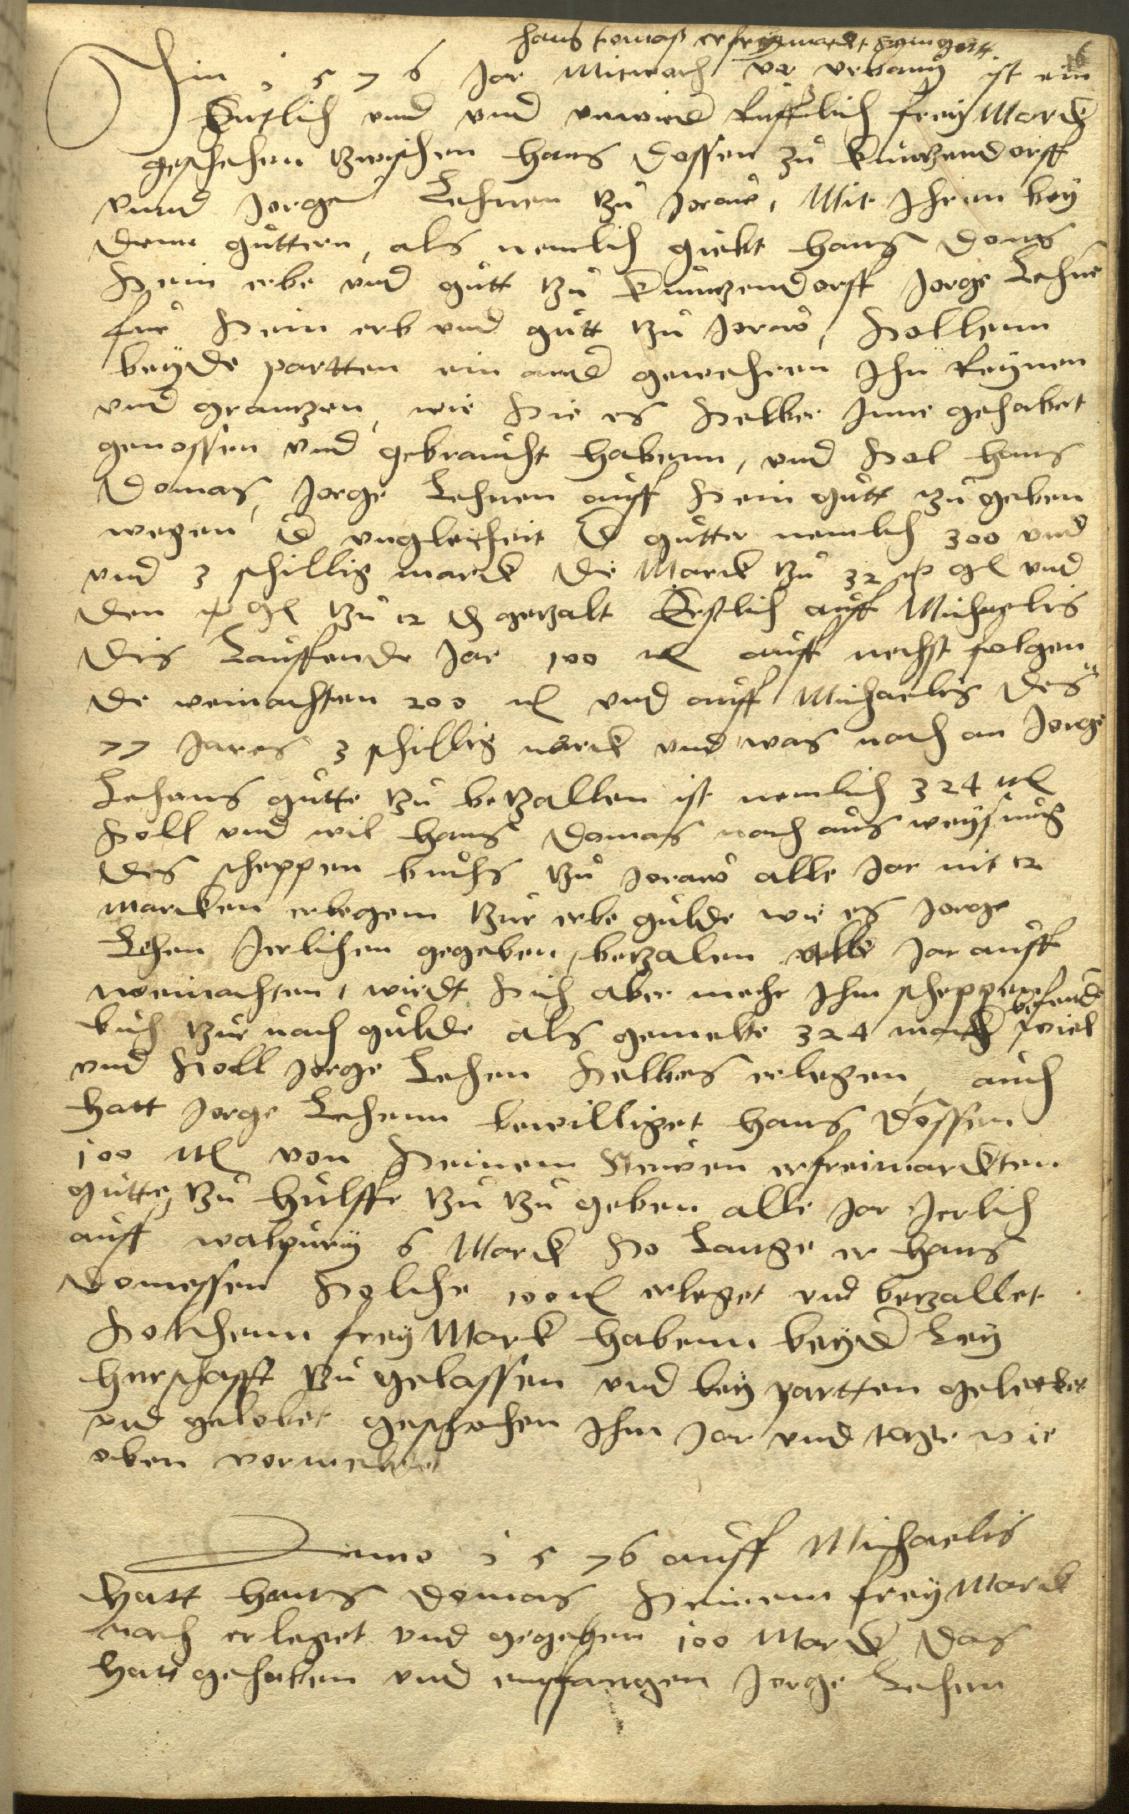 hans tomas erfreymarckt sein gutt
16
Im 1 5 7 6 Jar Mitwoch vor urbany ist ein
Entlich vnnd vnd vnwider Rufflich frey Marck
geschehen tzwischen hans Dossen zu kuntzendorff
vnnd Jorge Lehnen tzu Joraw, Mit Ihrenn bey
denn guttern, als nemlich giebt hans Doms
sein erbe vnd gutt tzu kuntzendorff Jorge Lehne
fur sein erb vnd gutt tzu Joraw, sollenn
beyde partten ein ander gewehren Ihn Reynen
vnd grantzen, wie sie es selber Inne gehabet
genossen vnd gebraucht habenn, vnd sol hans
Domas, Jorge Lehnen auff sein gutt zu geben
wegen der vngleicheit der gutter nemlich 300 vnd
vnd 3 schillig marck die Marck tzu 32 gl vnd
den gl tzu 12 d getzalt Erstlich auff Michaelis
dis Lauffende Jar 100 M auff nechst folgen
de weinachten 200 M vnd auff Michaelis des
77 Jares 3 schillig marck vnd was noch an Jorge
Lehens gutte tzu betzallen ist nemlich 324 M
soll vnd wil hans Domas nach aus weysung
des scheppen buchs tzu Joraw alle Jar mit 12
marcken erlegenn tzur erbe gulde wie es Jorge
Lehen Jerlichen gegeben, betzalen alle Jar auff
weinachten, wirdt sich aber mehr Ihm scheppen befinde
buch tzur nach gulde als gemelte 324 marck soviel
vnd soll Jorge Lehen selbes erlegen, auch
hatt Jorge Lehenn bewilliget hans Dossen
100 M von seinem erfreimarckten
gutte, tzu hulffe tzu tzu geben alle Jar Jerlich
auff walpury 6 Marck so Lange er hans
Domessen solche 100 M erleget vnd betzallet
solchenn frey Marck habenn beyder Ley
herschafft tzu gelassen vnd bey partten geliebet
vnd gelobet geschehen Ihm Jar vnd tage wie
oben vormeldet

Anno 1 5 76 auff Michaelis
hatt hans Domas seinem frey Marck
nach erleget vnd gegeben 100 Marck das
hatt gehoben vnd empfangen Jorge Lehen